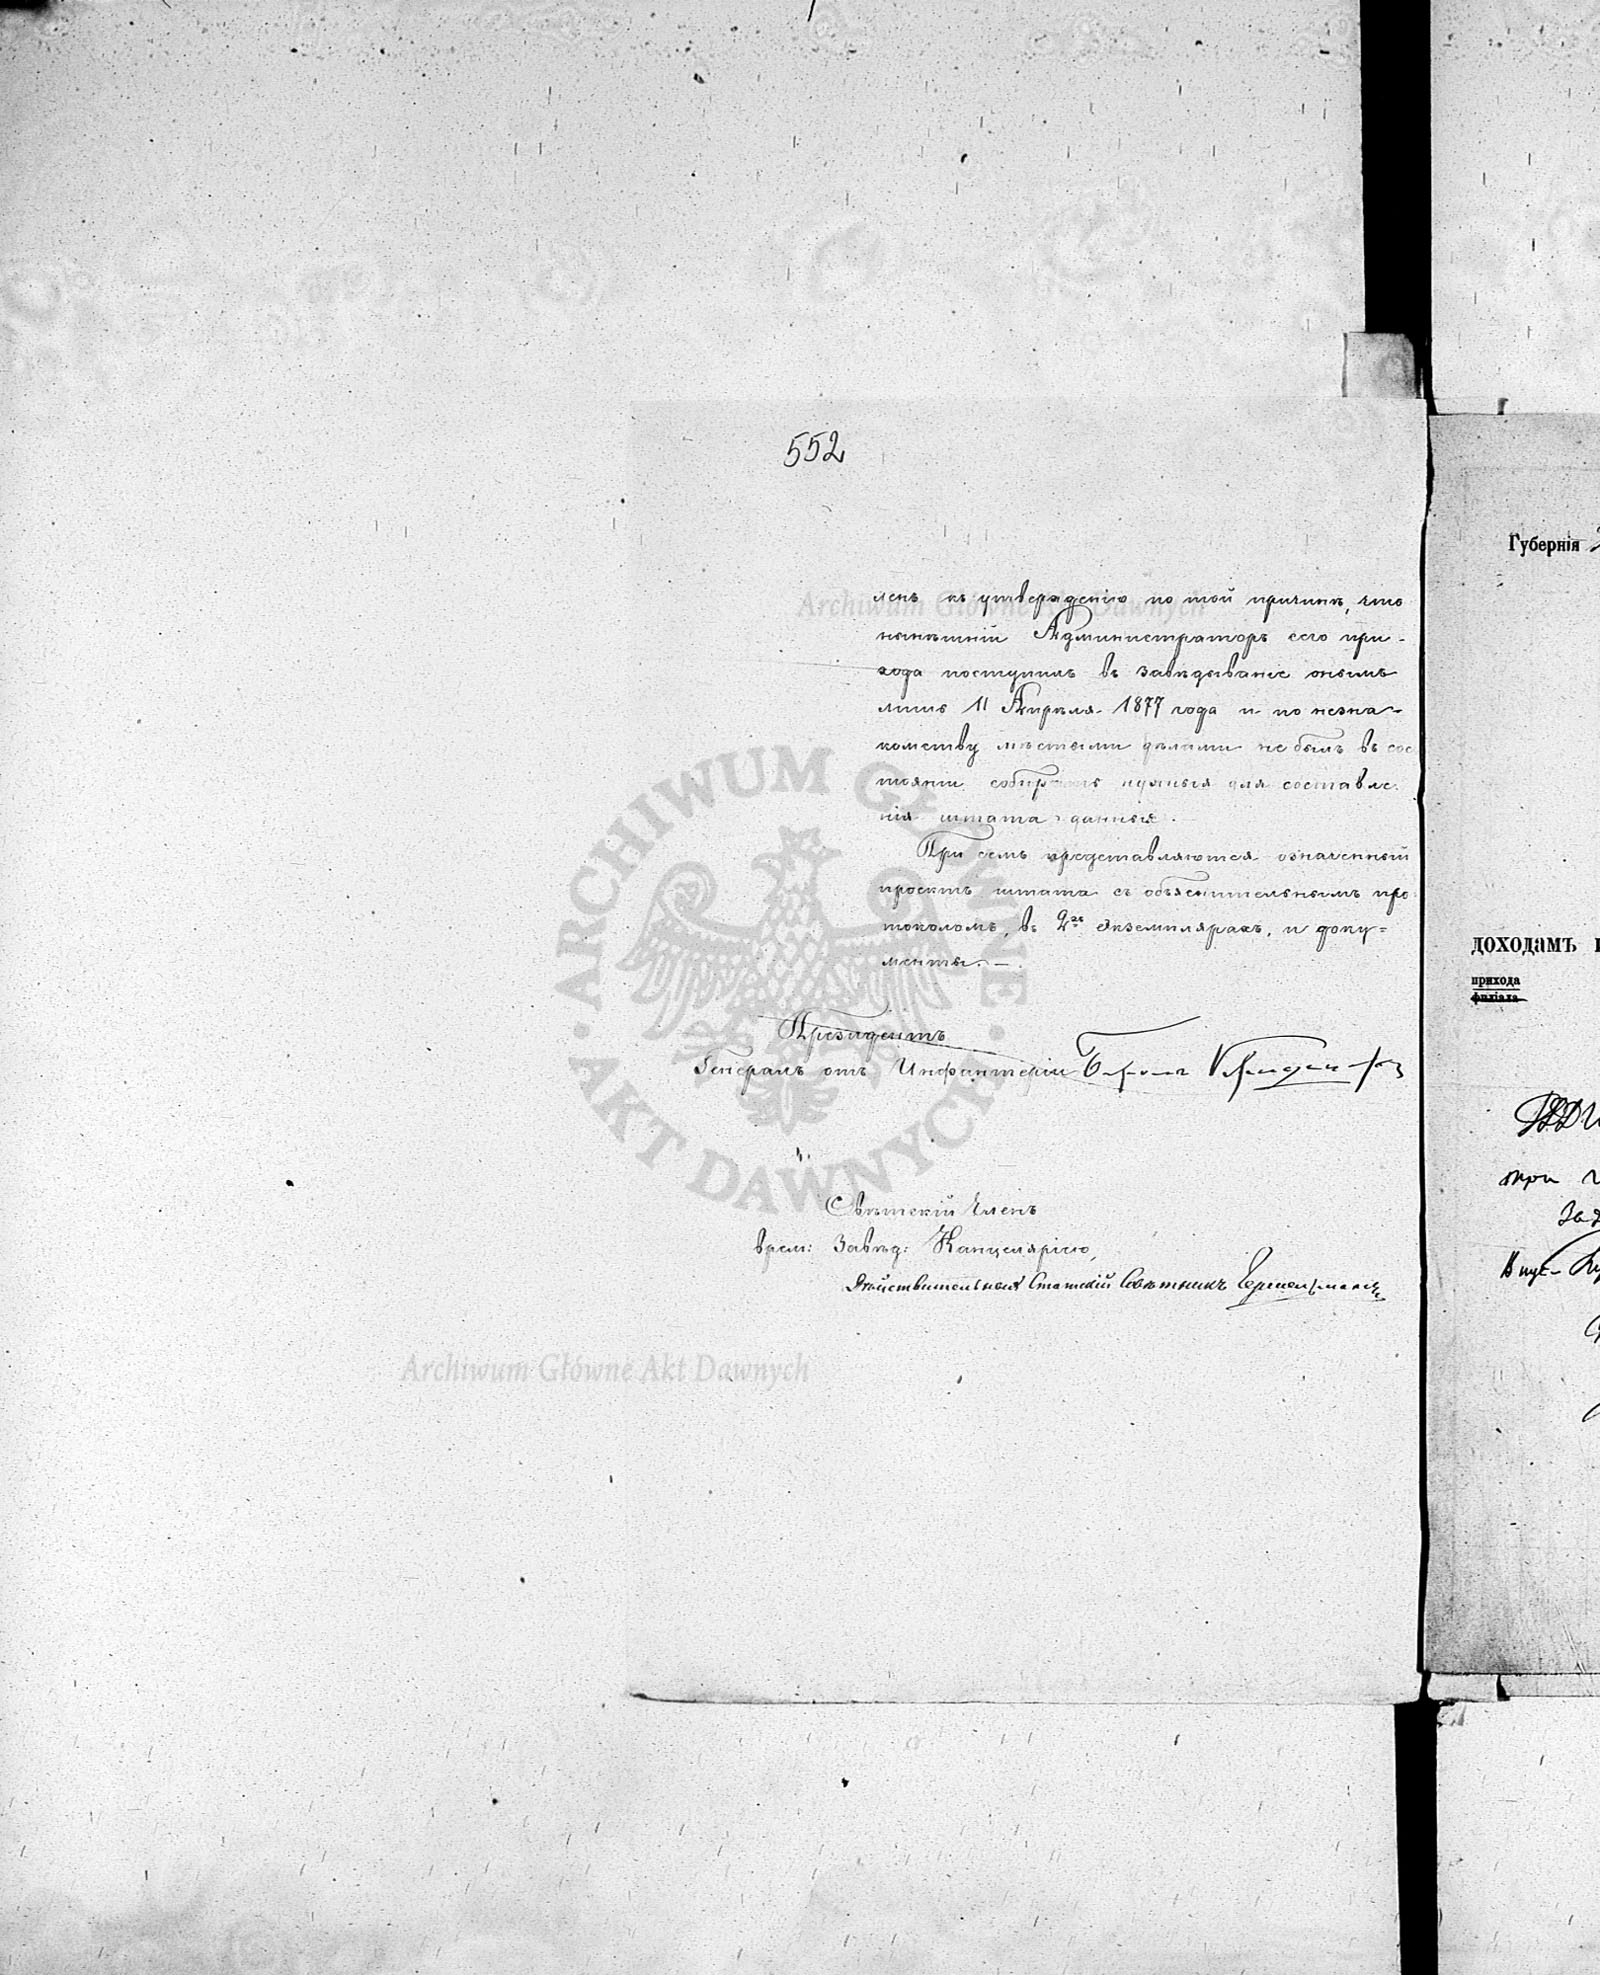 552
ленъ къ утвержденію по той причинѣ, что
нынѣшній Администраторъ сего при-
хода поступилъ въ завѣдываніе онымъ
лишь 11 Апрѣля 1877 года и по незна-
комству мѣстными дѣлами не былъ въ сос
тояніи собирать нужныя для составле
нія штата данныя.
При семъ представляются означенный
проектъ штата съ объяснительнымъ про
токоломъ, въ 2хъ экземплярахъ, и доку=
менты.—
Президентъ
Генералъ отъ Инфантеріи Баронъ
Свѣтскій Членъ
врем: Завѣд: Канцеляріею,
Дѣйствительный Статскій Совѣтникъ
Губернія
доходамъ
прихода
филіала
при
Archiwum Główne Akt Dawnych
ARCHIWUM GŁÓWNE AKT DAWNYCH
Archiwum Główne Akt Dawnych